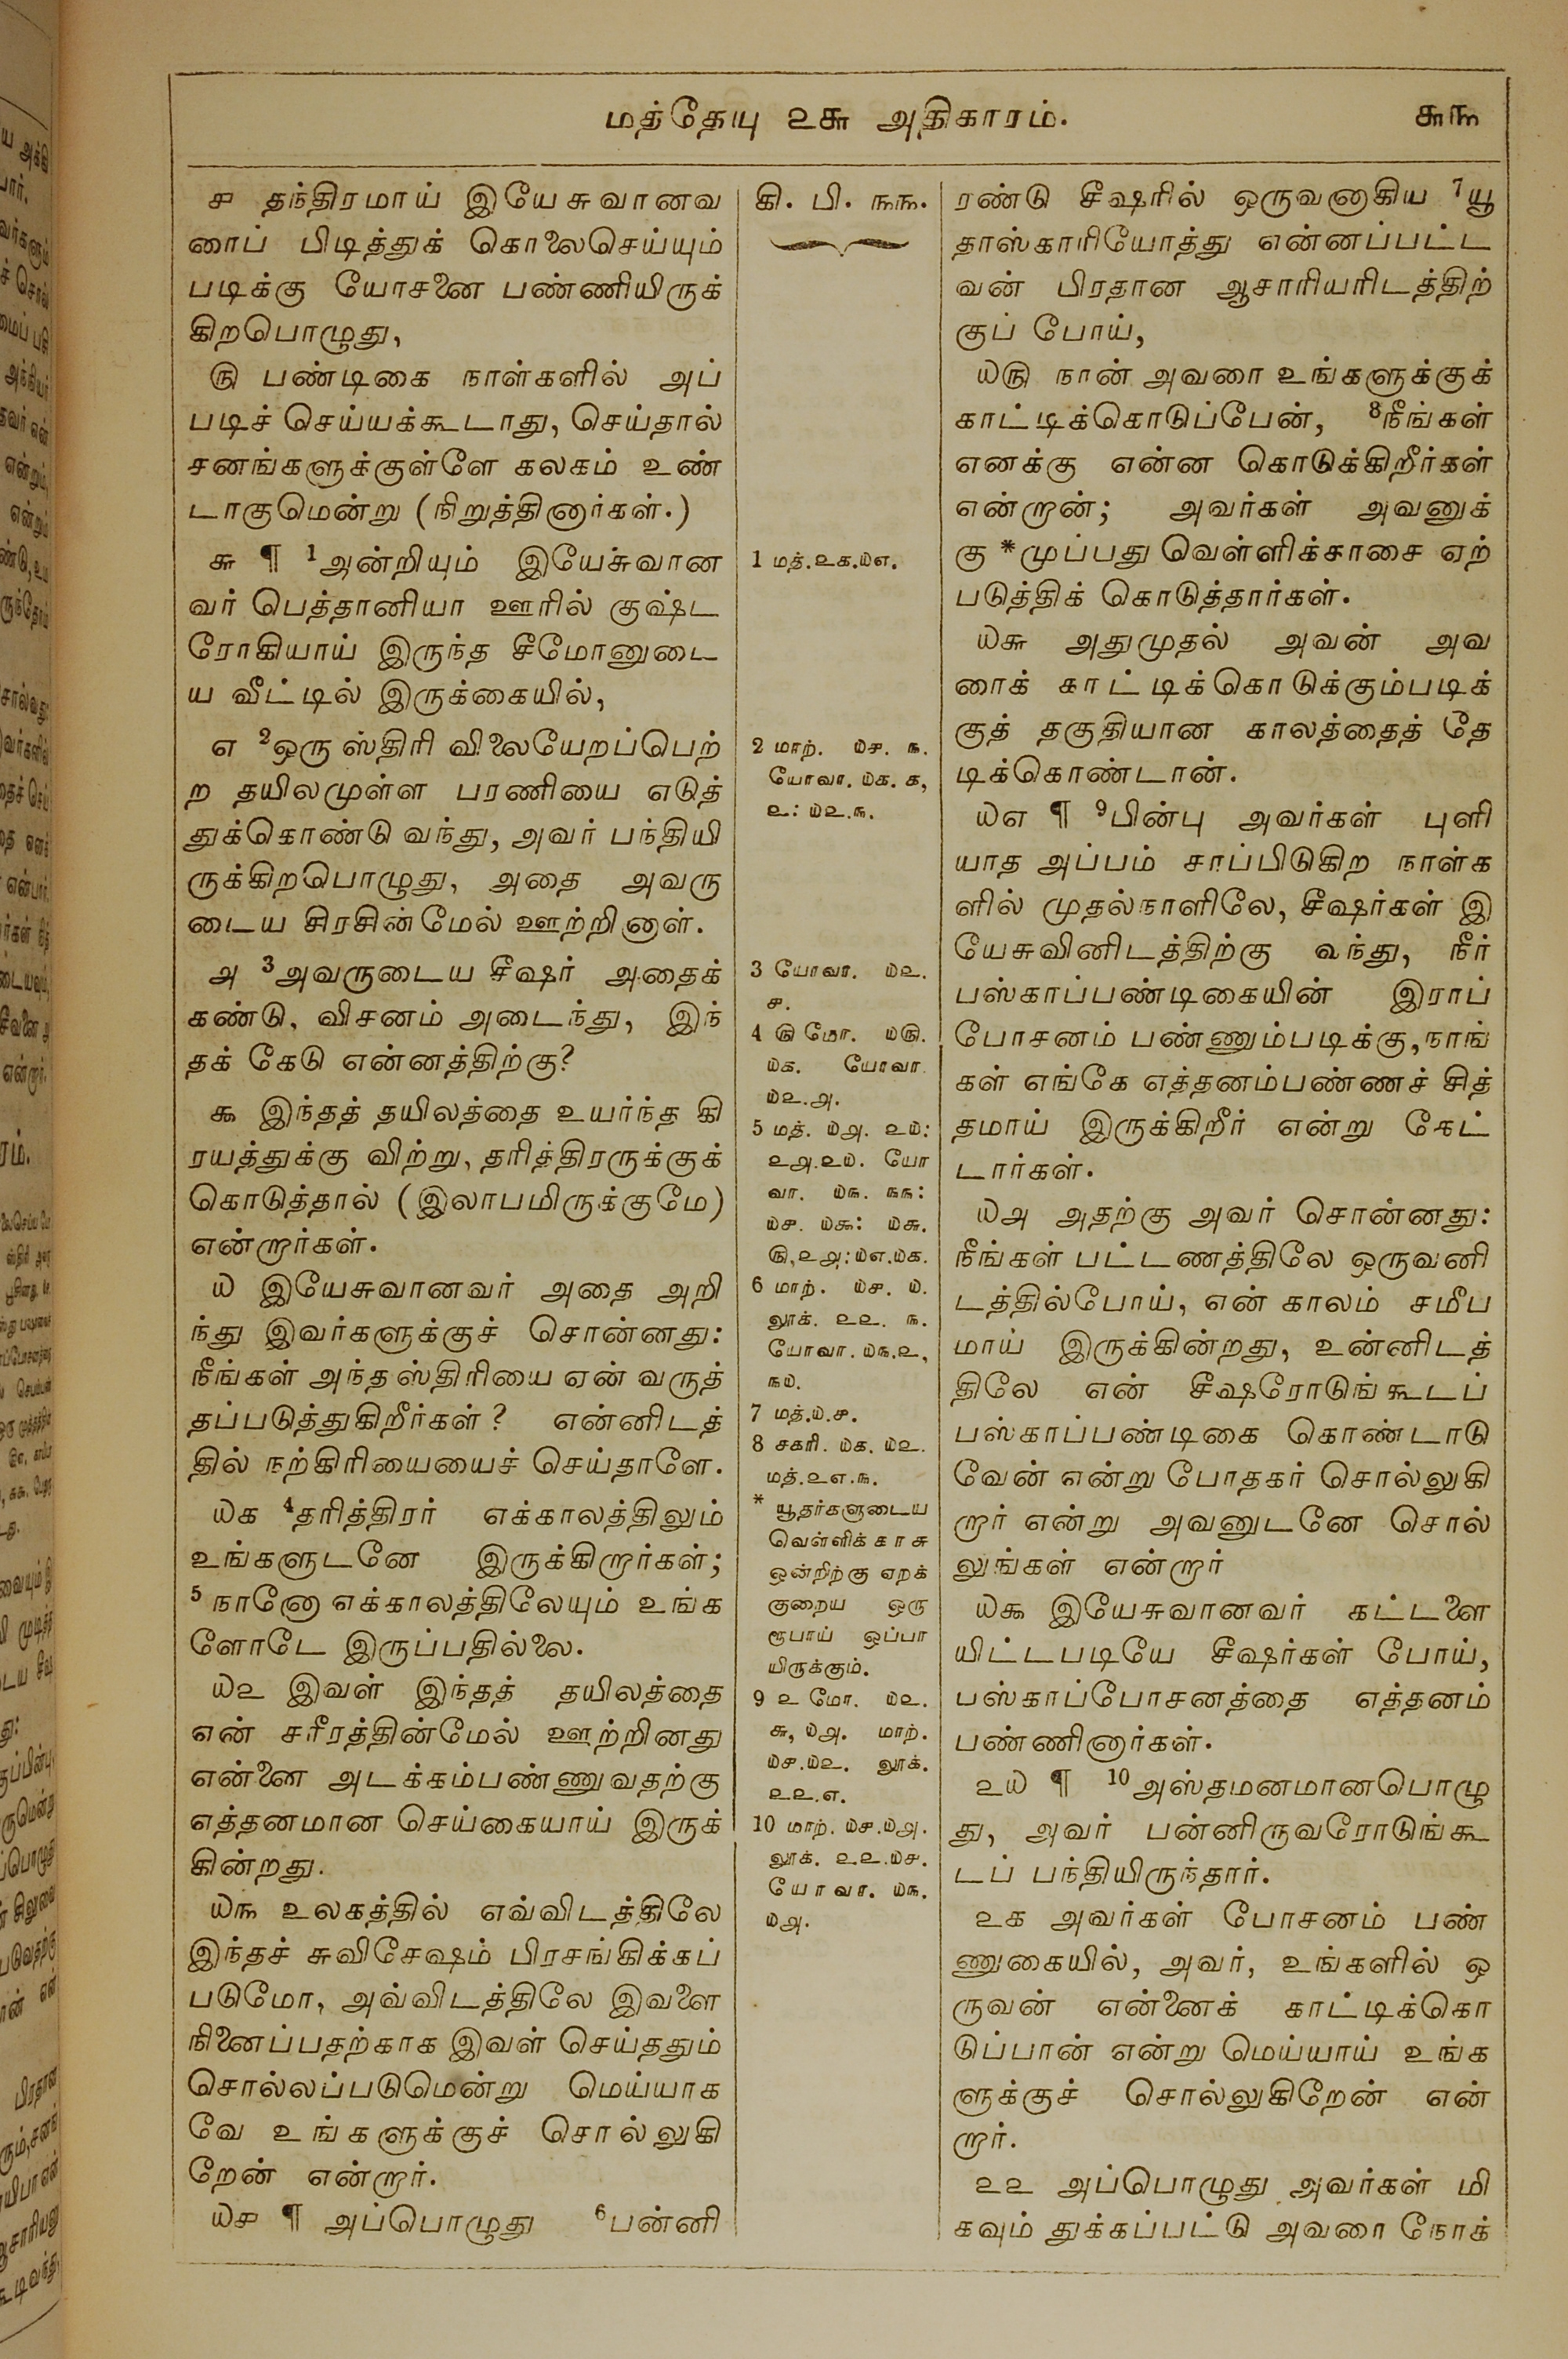 மத்தேயு ௨௬ அதிகாரம்.
௬௩
௪ தந்திரமாய் இயேசுவானவ
ரைப் பிடித்துக் கொலைசெய்யும்
படிக்கு யோசனை பண்ணியிருக்
கிறபொழுது,
௫ பண்டிகை நாள்களில் அப்
படிச் செய்யக்கூடாது, செய்தால்
சனங்களுக்குள்ளே கலகம் உண்
டாகுமென்று (நிறுத்தினார்கள்.)
௬ ¶ 1அன்றியும் இயேசுவான
வர் பெத்தானியா ஊரில் குஷ்ட
ரோகியாய் இருந்த சீமோனுடை
ய வீட்டில் இருக்கையில்,
௭ 2ஒரு ஸ்திரி விலையேறப்பெற்
ற தயிலமுள்ள பரணியை எடுத்
துக்கொண்டு வந்து, அவர் பந்தியி
ருக்கிறபொழுது, அதை அவரு
டைய சிரசின்மேல் ஊற்றினாள்.
௮ 3அவருடைய சீஷர் அதைக்
கண்டு, விசனம் அடைந்து, இந்
தக் கேடு என்னத்திற்கு?
௯ இந்தத் தயிலத்தை உயர்ந்த கி
ரயத்துக்கு விற்று, தரித்திரருக்குக்
கொடுத்தால் (இலாபமிருக்குமே)
என்றார்கள்.
௰ இயேசுவானவர் அதை அறி
ந்து இவர்களுக்குச் சொன்னது:
நீங்கள் அந்த ஸ்திரியை ஏன் வருத்
தப்படுத்துகிறீர்கள்? என்னிடத்
தில் நற்கிரியையைச் செய்தாளே.
௰௧ 4தரித்திரர் எக்காலத்திலும்
உங்களுடனே இருக்கிறார்கள்;
5நானோ எக்காலத்திலேயும் உங்க
ளோடே இருப்பதில்லை.
௰௨ இவள் இந்தத் தயிலத்தை
என் சரீரத்தின்மேல் ஊற்றினது
என்னை அடக்கம்பண்ணுவதற்கு
எத்தனமான செய்கையாய் இருக்
கின்றது.
௰௩ உலகத்தில் எவ்விடத்திலே
இந்தச் சுவிசேஷம் பிரசங்கிக்கப்
படுமோ, அவ்விடத்திலே இவளை
நினைப்பதற்காக இவள் செய்ததும்
சொல்லப்படுமென்று மெய்யாக
வே உங்களுக்குச் சொல்லுகி
றேன் என்றார்.
௰௪ ¶ அப்பொழுது 6பன்னி
கி. பி. ௩௩.
1 மத்.௨௧.௰௭.
2 மாற். ௰௪. ௩.
யோவா. ௰௧. ௧,
௨: ௰௨.௩.
3 யோவா. ௰௨.
௪.
4 ௫ மோ. ௰௫.
௰௧. யோவா
௰௨.௮.
5 மத். ௰௮. ௨௰:
௨௮.௨௰. யோ
வா. ௰௩. ௩௩:
௰௪. ௰௯: ௰௬.
௫,௨௮:௰௭.௰௧.
6 மாற். ௰௪. ௰.
லூக். ௨௨. ௩.
யோவா. ௰௩.௨,
௩௰.
7 மத்.௰.௪.
8 சகரி. ௰௧. ௰௨.
மத்.௨௭.௩.
* யூதர்களுடைய
வெள்ளிக்காசு
ஒன்றிற்கு ஏறக்
குறைய ஒரு
ரூபாய் ஒப்பா
யிருக்கும்.
9 ௨ மோ. ௰௨.
௬, ௰௮. மாற்.
௰௪.௰௨. லூக்.
௨௨.௭.
10 மாற். ௰௪.௰௮.
லூக். ௨௨.௰௪.
யோவா. ௰௩.
௰௮.
ரண்டு சீஷரில் ஒருவனாகிய 7யூ
தாஸ்காரியோத்து என்னப்பட்ட
வன் பிரதான ஆசாரியரிடத்திற்
குப் போய்,
௰௫ நான் அவரை உங்களுக்குக்
காட்டிக்கொடுப்பேன், 8நீங்கள்
எனக்கு என்ன கொடுக்கிறீர்கள்
என்றான்; அவர்கள் அவனுக்
கு *முப்பது வெள்ளிக்காசை ஏற்
படுத்திக் கொடுத்தார்கள்.
௰௬ அதுமுதல் அவன் அவ
ரைக் காட்டிக்கொடுக்கும்படிக்
குத் தகுதியான காலத்தைத் தே
டிக்கொண்டான்.
௰௭ ¶ 9பின்பு அவர்கள் புளி
யாத அப்பம் சாப்பிடுகிற நாள்க
ளில் முதல்நாளிலே, சீஷர்கள் இ
யேசுவினிடத்திற்கு வந்து, நீர்
பஸ்காப்பண்டிகையின் இராப்
போசனம் பண்ணும்படிக்கு, நாங்
கள் எங்கே எத்தனம்பண்ணச் சித்
தமாய் இருக்கிறீர் என்று கேட்
டார்கள்.
௰௮ அதற்கு அவர் சொன்னது:
நீங்கள் பட்டணத்திலே ஒருவனி
டத்தில்போய், என் காலம் சமீப
மாய் இருக்கின்றது, உன்னிடத்
திலே என் சீஷரோடுங்கூடப்
பஸ்காப்பண்டிகை கொண்டாடு
வேன் என்று போதகர் சொல்லுகி
றார் என்று அவனுடனே சொல்
லுங்கள் என்றார்
௰௯ இயேசுவானவர் கட்டளை
யிட்டபடியே சீஷர்கள் போய்,
பஸ்காப்போசனத்தை எத்தனம்
பண்ணினார்கள்.
௨௰ ¶ 10அஸ்தமனமானபொழு
து, அவர் பன்னிருவரோடுங்கூ
டப் பந்தியிருந்தார்.
௨௧ அவர்கள் போசனம் பண்
ணுகையில், அவர், உங்களில் ஒ
ருவன் என்னைக் காட்டிக்கொ
டுப்பான் என்று மெய்யாய் உங்க
ளுக்குச் சொல்லுகிறேன் என்
றார்.
௨௨ அப்பொழுது அவர்கள் மி
கவும் துக்கப்பட்டு அவரை நோக்